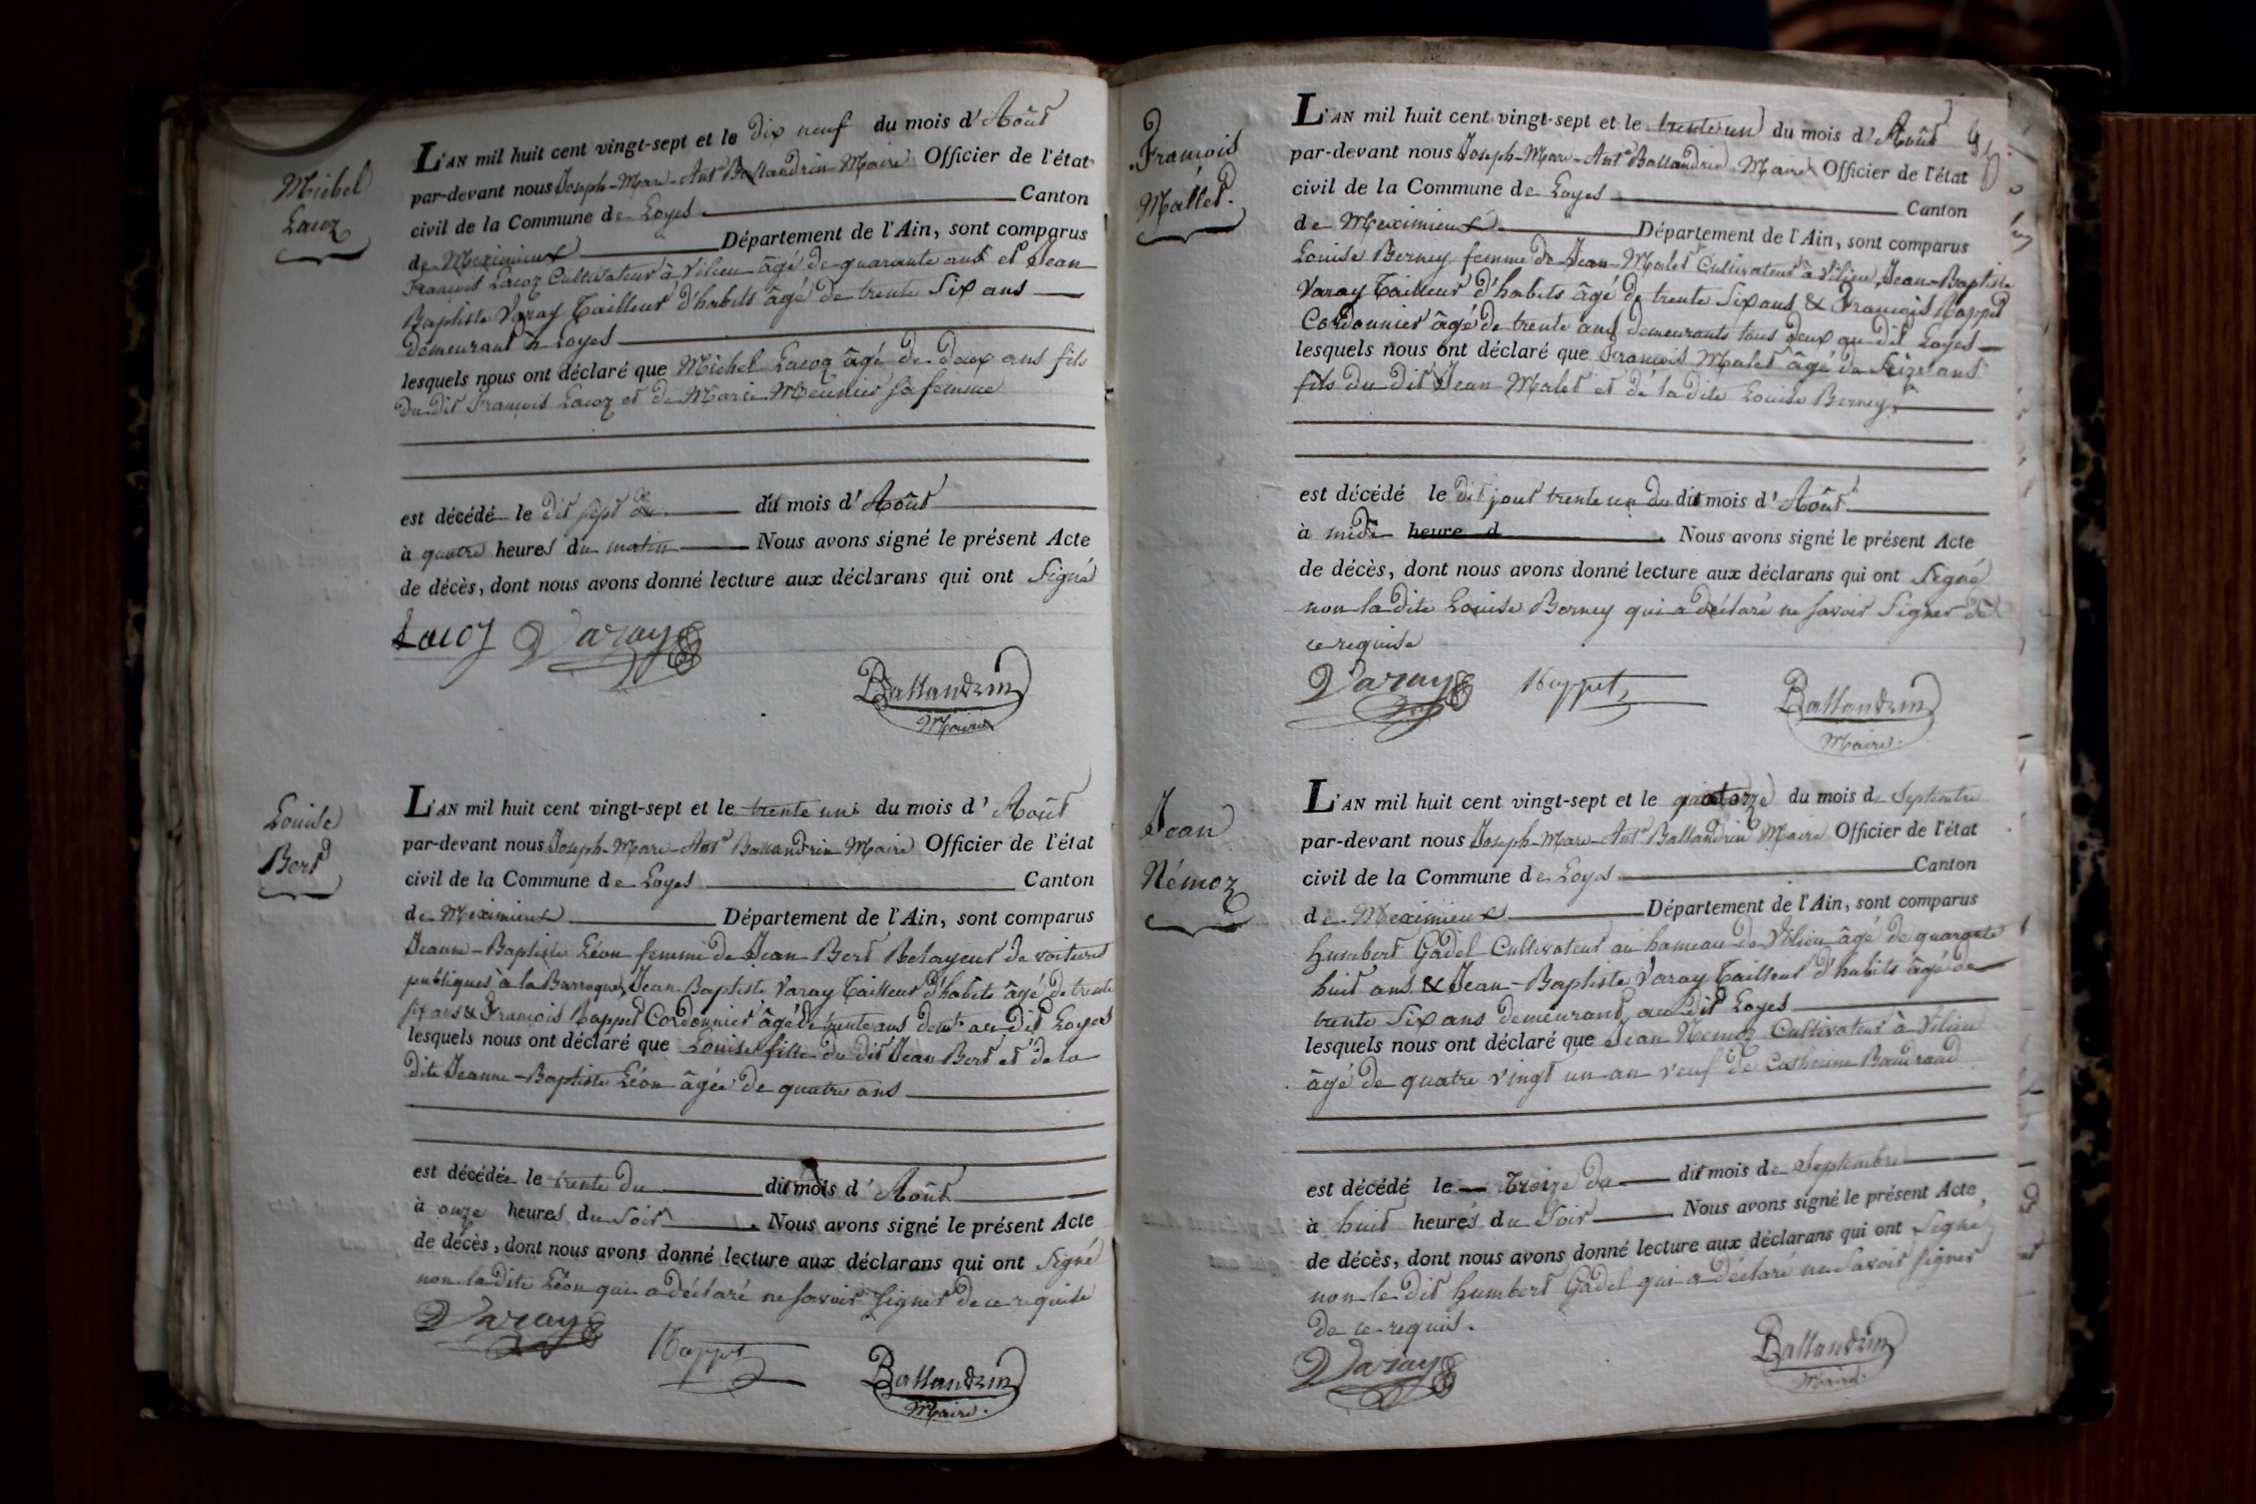 Michel
Lacoz
L'AN mil huit cent vingt-sept et le dix neuf du mois d'Août
par-devant nous Joseph-Marc-Ant.e Ballandrin Maire Officier de l'état
civil de la Commune de Loyes Canton
de Meximieux Département de l'Ain, sont comparus
François Lacoz Cultivateur à Vilieu âgé de quarante ans et Jean
Baptiste Varay Tailleur d'habits âgé de trente Six ans
demeurant à Loyes
lesquels nous ont déclaré que Michel Lacoz âgé de deux ans fils
du dit François Lacoz et de Marie Meunier sa femme
est décédé le dix sept du dit mois d'Août
à quatre heures du matin Nous avons signé le présent Acte
de décès, dont nous avons donné lecture aux déclarans qui ont Signé
Lacoz Varay
Ballandrin
Maire
Louise
Bert
L'AN mil huit cent vingt-sept et le trente un du mois d'Août
par-devant nous Joseph-Marc-Ant.e Ballandrin Maire Officier de l'état
civil de la Commune de Loyes Canton
de Meximieux Département de l'Ain, sont comparus
Jeanne-Baptiste Léon femme de Jean Bert Relayeur de voitures
publiques à la Barraque, Jean Baptiste Varay Tailleur d'habits âgé de trente
six ans & François Rappet Cordonnier âgé de trente ans dem.t au dit Loyes
lesquels nous ont déclaré que Louise fille du dit Jean Bert et de la
dite Jeanne-Baptiste Léon âgée de quatre ans
est décédée le trente du dit mois d'Août
à onze heures du Soir. Nous avons signé le présent Acte
de décès, dont nous avons donné lecture aux déclarans qui ont Signé
non la dite Léon qui a déclaré ne savoir signer de ce requise
Varay Rappet Ballandrin
Maire.
François
Mallet.
L'AN mil huit cent vingt-sept et le trente un du mois d'Août
par-devant nous Joseph-Marc-Ant.e Ballandrin Maire Officier de l'état
civil de la Commune de Loyes Canton
de Meximieux Département de l'Ain, sont comparus
Louise Berney femme de Jean Malet Cultivateur à Vilieu, Jean-Baptiste
Varay Tailleur d'habits âgé de trente Six ans & François Rappet
Cordonnier âgé de trente ans demeurants tous deux au dit Loyes
lesquels nous ont déclaré que François Malet âgé de Seize ans
fils du dit Jean Malet et de la dite Louise Berney
est décédé le dit jour trente un du dit mois d'Août
à midi heure d . Nous avons signé le présent Acte
de décès, dont nous avons donné lecture aux déclarans qui ont Signé
non la dite Louise Berney qui a déclaré ne savoir Signer de
ce requise
Varay Rappet Ballandrin
Maire.
Jean
Némoz
L'AN mil huit cent vingt-sept et le quatorze du mois de Septembre
par-devant nous Joseph-Marc-Ant.e Ballandrin Maire Officier de l'état
civil de la Commune de Loyes Canton
de Meximieux Département de l'Ain, sont comparus
humbert Gadel Cultivateur au hameau de Vilieu âgé de quarante
huit ans & Jean-Baptiste Varay Tailleur d'habits âgé de
trente Six ans demeurant au dit Loyes
lesquels nous ont déclaré que Jean Némoz Cultivateur à Vilieu
âgé de quatre vingt un an veuf de Catherine Baudrand
est décédé le Treize du dit mois de Septembre
à huit heures du Soir Nous avons signé le présent Acte
de décès, dont nous avons donné lecture aux déclarans qui ont Signé
non le dit humbert Gadel qui a déclaré ne Savoir signer
de ce requis.
Varay Ballandrin
Maire.